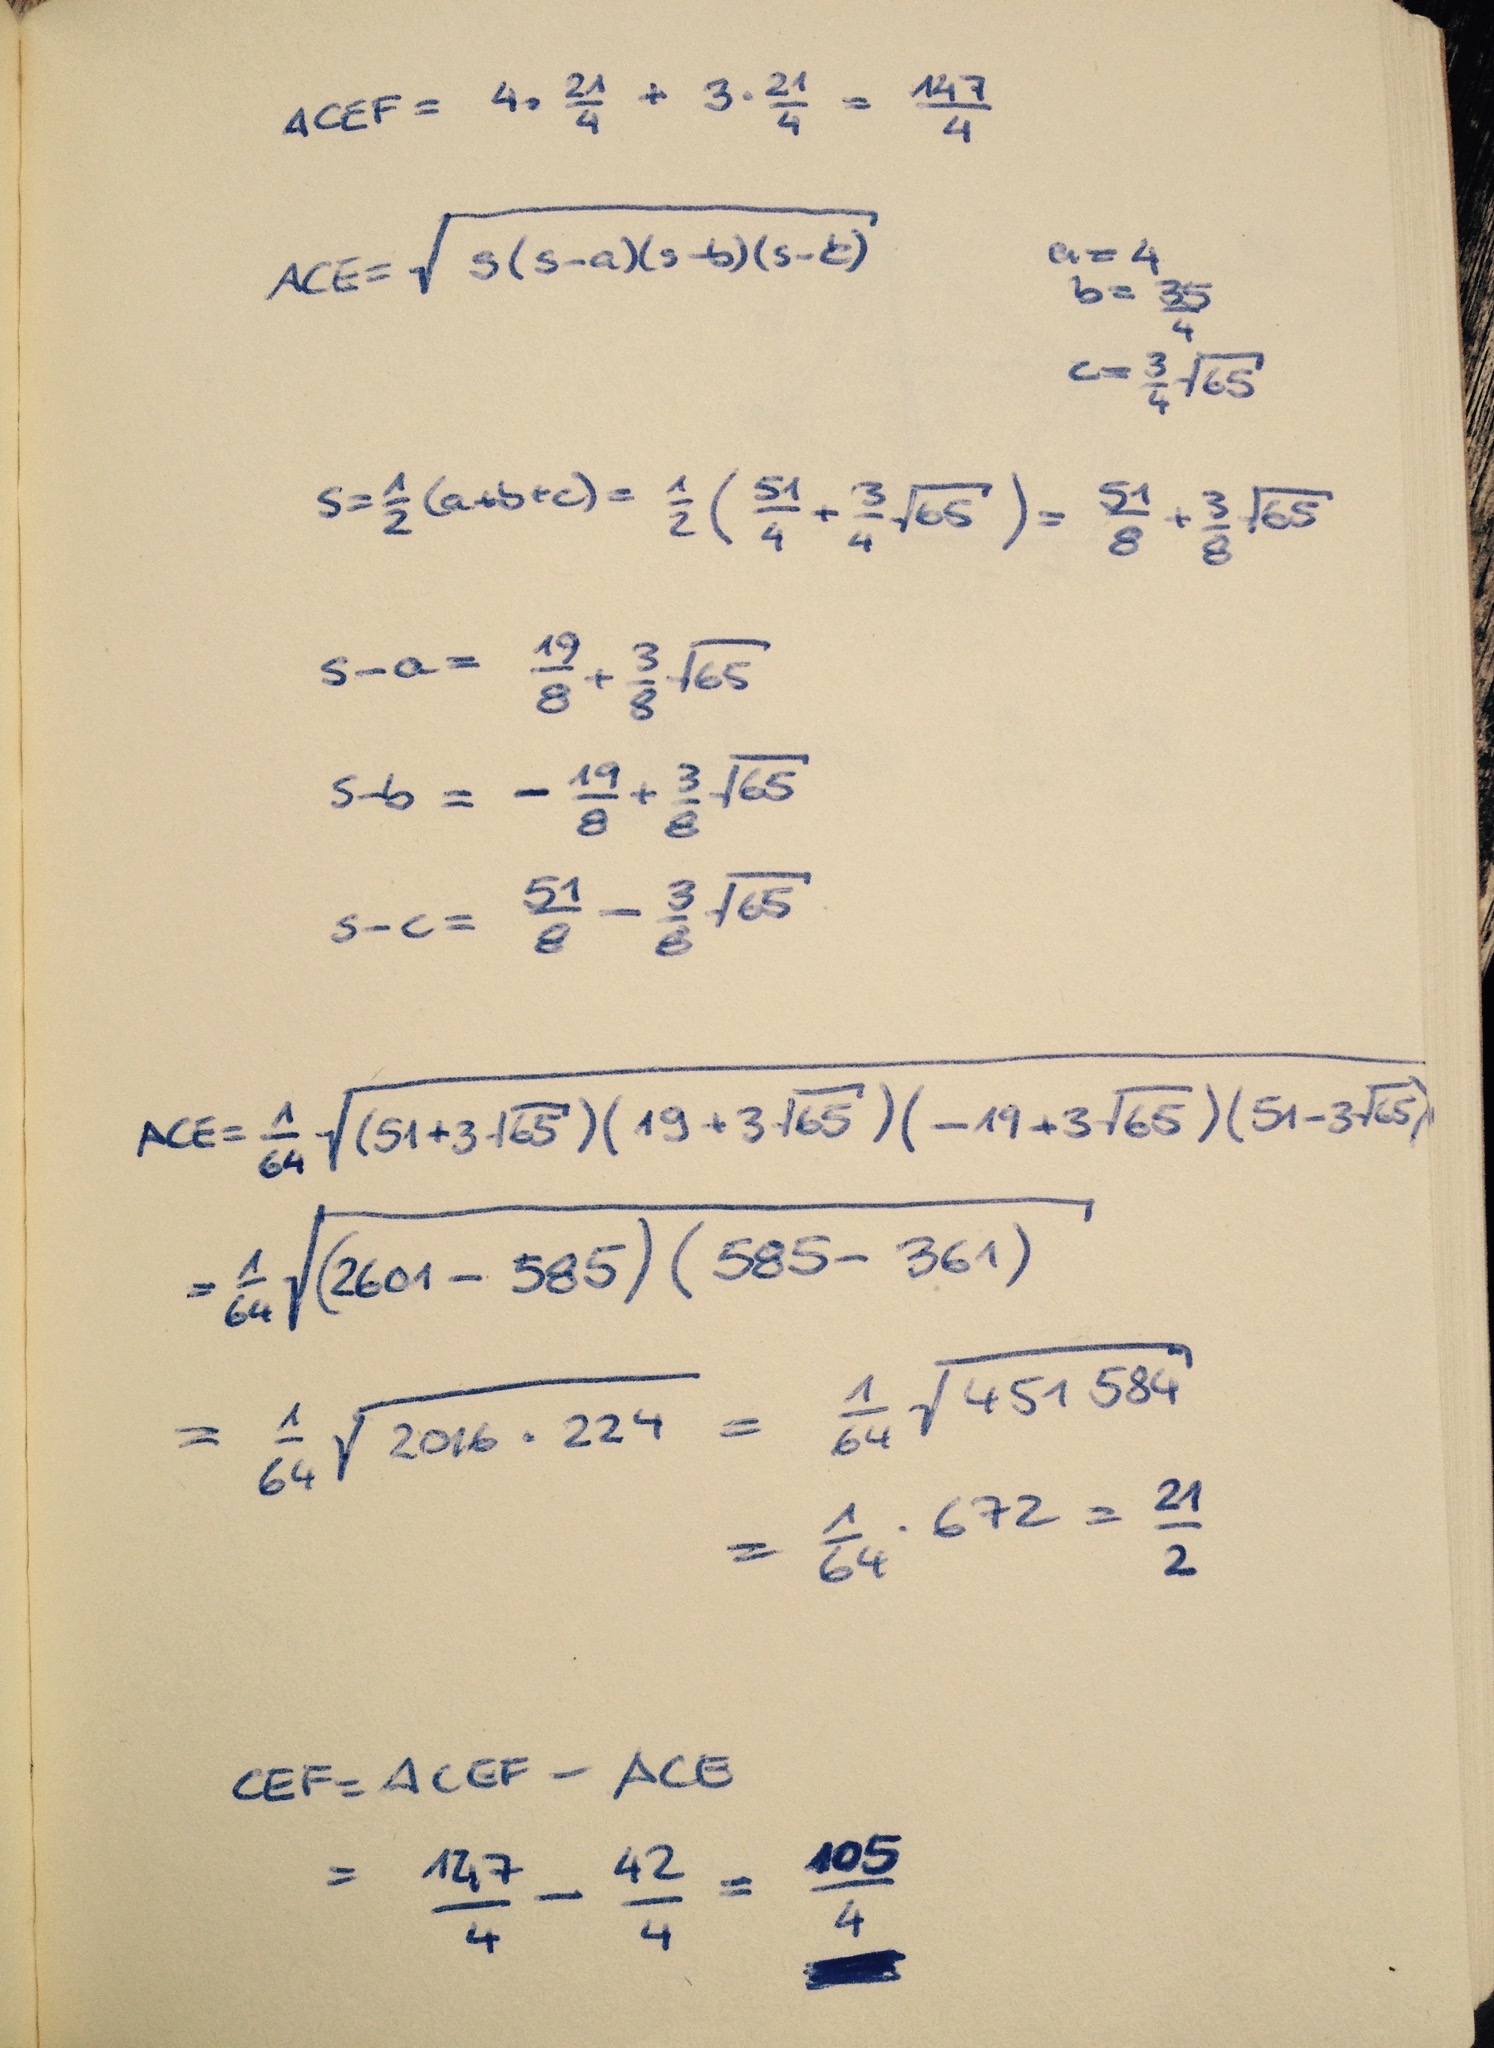 ACEF = 4 · 21/4 + 3 · 21/4 = 147/4
ACE = √(s(s-a)(s-b)(s-c))
a = 4
b = 35/4
c = 3/4 √65
s = 1/2 (a+b+c) = 1/2 (51/4 + 3/4 √65) = 51/8 + 3/8 √65
s-a = 19/8 + 3/8 √65
s-b = -19/8 + 3/8 √65
s-c = 51/8 - 3/8 √65
ACE = 1/64 √((51+3√65)(19+3√65)(-19+3√65)(51-3√65))
= 1/64 √((2601 - 585)(585 - 361))
= 1/64 √(2016 · 224) = 1/64 √(451 584)
= 1/64 · 672 = 21/2
CEF = ACEF - ACE
= 147/4 - 42/4 = 105/4